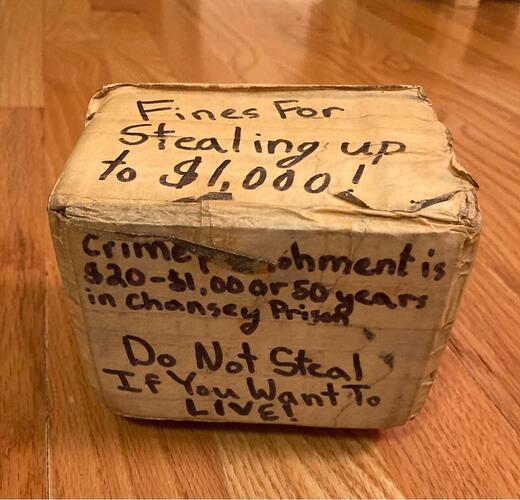 Fines For
Stealing up
to $1,000!
Crime ohment is
$20-$1,000 or 50 years
in Chansey Prison
Do Not Steal
If You Want To
LIVE!